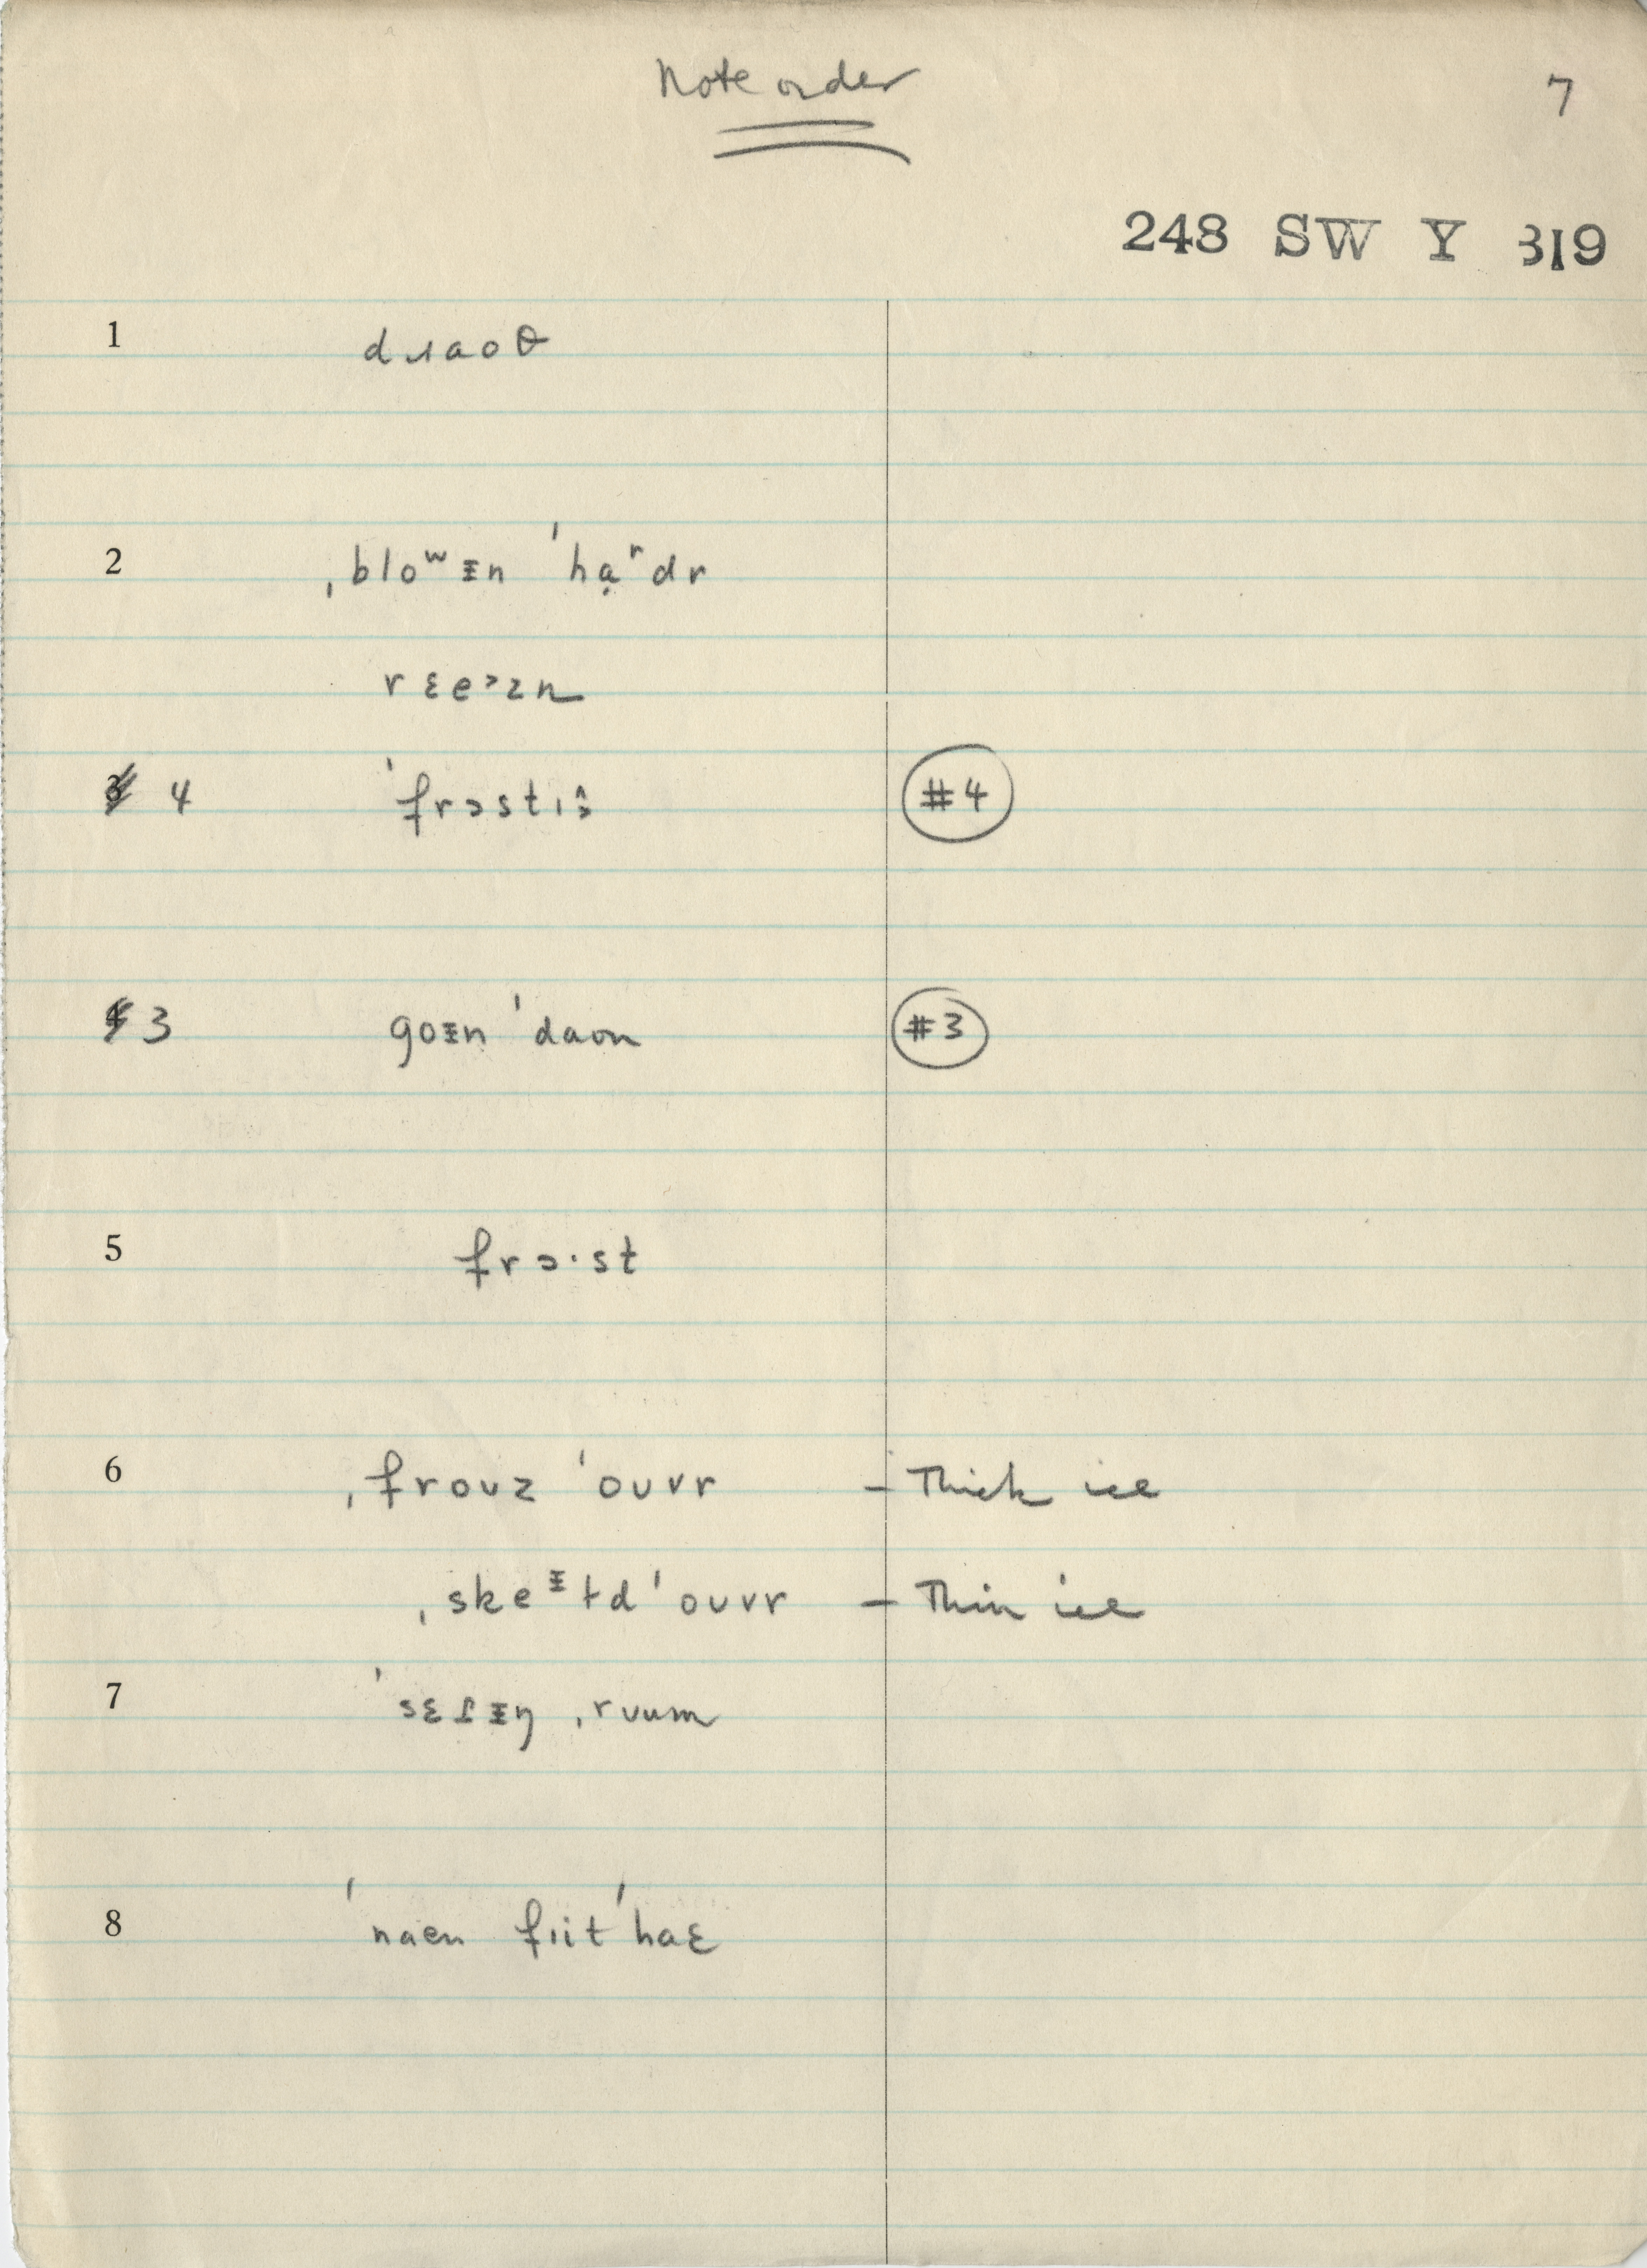 Note order
7
248 SW Y 319
1 dɹaoθ
2 ˌbloʷᵻn ˈhạʳdr
rɛeᵊzn
3 4 ˈfrɔstɪ #4
4 3 goᵻn ˈdaon #3
5 frɔ·st
6 ˌfroʊz ˈoʊvr – Thick ice
ˌskeᵻtd ˈoʊvr – Thin ice
7 ˈsɛɾᵻŋ ˌrʊum
8 ˈnaen fɪit ˈhaɛ